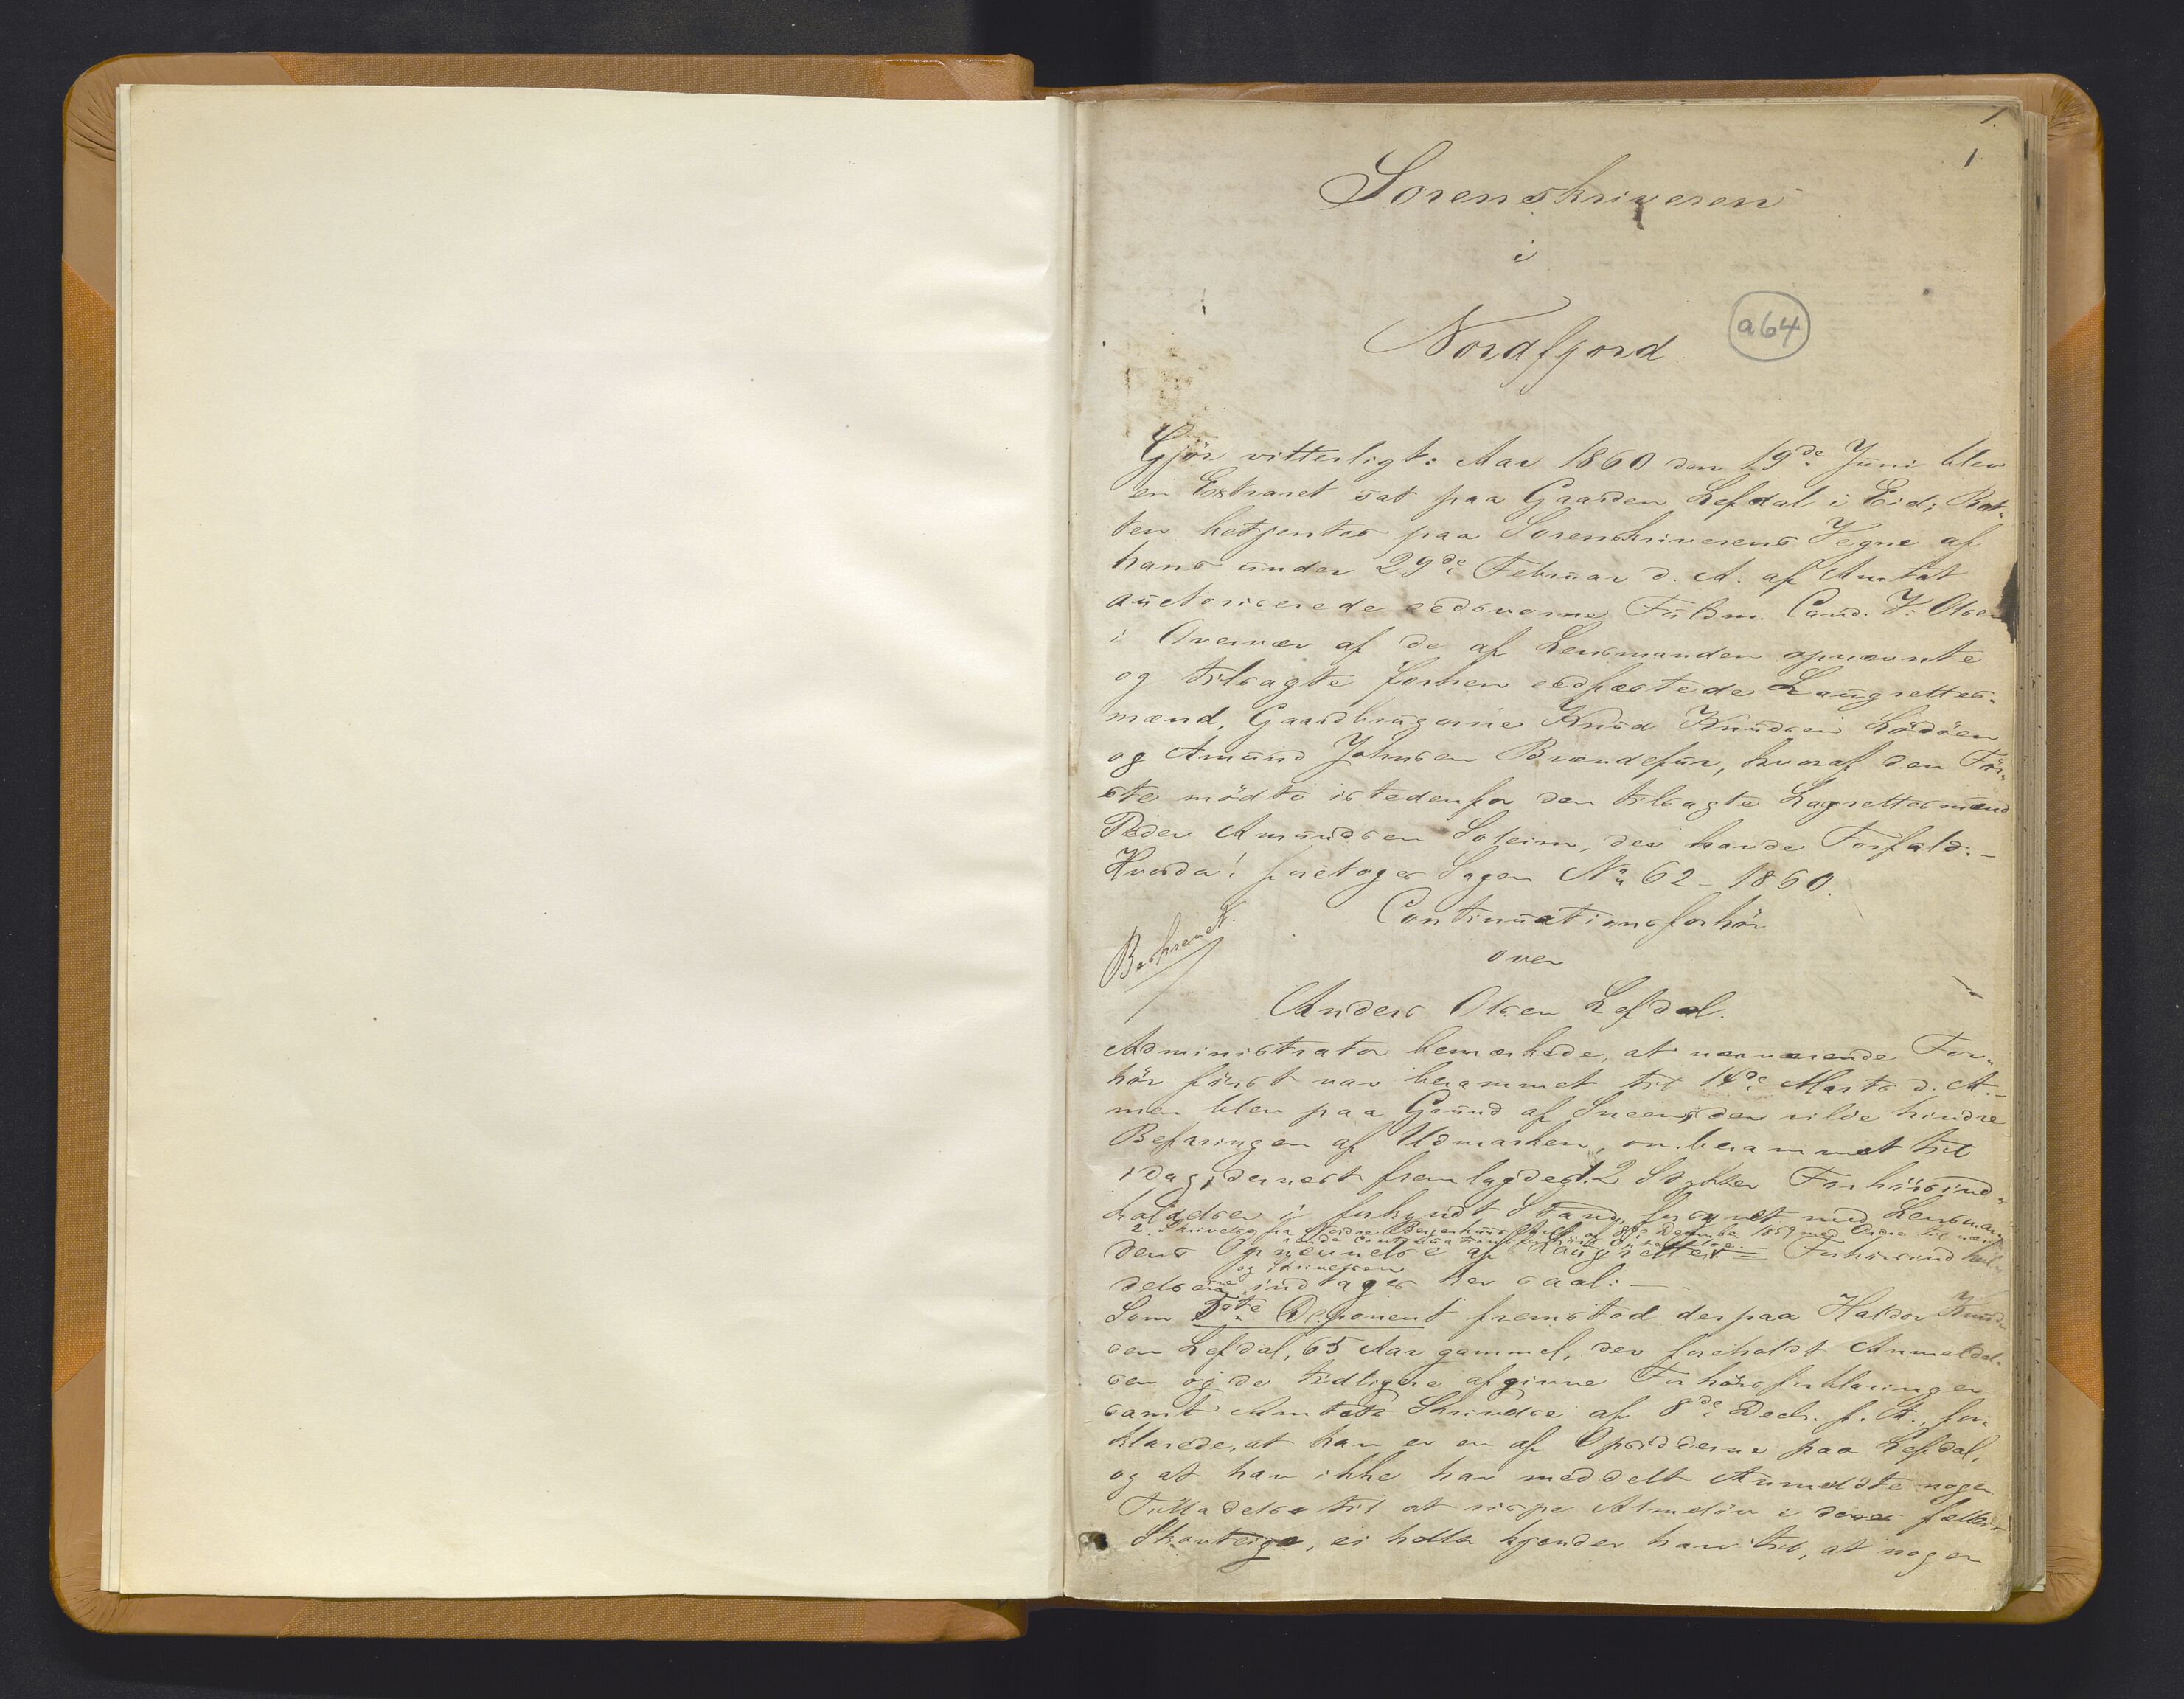 1.
1.
Sorenskriveren
i
Nordfjord
a64
Gjör vitterligt: Aar 1860 den 19de Juni blev
en Extraret sat paa Gaarden Lefdal i Eid; Ret-
ten betjentes paa Sorenskriverens Vegne af
hans under 29de Februar d. A. af Amtet
auctoriserede edsvorne Fuldm. Cand. J. Olsen
i Overvær af de af Lensmanden opnævnte
og tilsagte forhen edfæstede Laugrettes-
mænd, Gaardbrugerne Knud Knudsen Lödöen
og Amund Johnsen Brændefur, hvoraf den För-
ste mödte istedenfor den tilsagte Lagrettesmand
Peder Amundsen Soleim, der havde Forfald.-
Hvorda! foretoges Sagen No 62-1860.
Continuationsforhör
over
Beskrevet.
Anders Olsen Lefdal.
Administrator bemærkede, at nærværende For-
hör först var berammet til 14de Marts d. A.-
men blev paa Grund af Sneen, der vilde hindre
Befaringen af Udmarken, om berammet til
idag; dernæst fremlagdes 1. 2 Stykker Forhörsind-
kaldelser i forkyndt Stand, forsynet med Lensman-
2. Skrivelse fra Nordre Bergenhuus Amt af 8de December 1859 med Ordre til nær-
dens Opnævnelse af Laugretter. - Forhörsindkal-
og Skrivelsen
delserne indtages her saal: -
Som 5te Deponent fremstod derpaa Haldor Knud-
sen Lefdal, 65 Aar gammel, der foreholdt Anmeldel-
sen og de tidligere afgivne Forhörsforklaringer
samt Amtets Skrivelse af 8de Decb. f. A., for-
klarede, at han er en af Opsidderne paa Lefdal,
og at han ikke har meddelt Anmeldte nogen
Tilladelse til at rispe Almelöv i deres fælles
Skovteige, ei heller kjender han til, at nogen